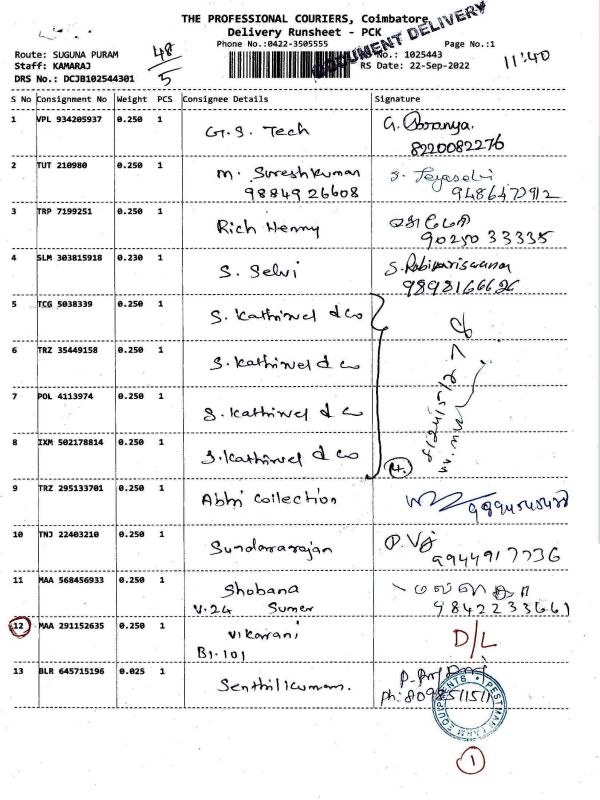 THE PROFESSIONAL COURIERS, Coimbatore
Delivery Runsheet - PCK
DOCUMENT DELIVERY
Phone No.:0422-3505555 Page No.:1
Route: SUGUNA PURAM 48/5 No.: 1025443 11:40
Staff: KAMARAJ RS Date: 22-Sep-2022
DRS No.: DCJB102544301
S No Consignment No Weight PCS Consignee Details Signature
1 VPL 934205937 0.250 1 G.S. Tech
8220082276
2 TUT 210980 0.250 1 M. Sureshkumar
9884926608
3 TRP 7199251 0.250 1 Rich Henny
9025033335
4 SLM 303815918 0.230 1 S. Selvi
9898166626
5 TCG 5038339 0.250 1 S. Kathirvel & co
6 TRZ 35449158 0.250 1 S. Kathirvel & co
7 POL 4113974 0.250 1 S. Kathirvel & co
8 IXM 502178814 0.250 1 S. Kathirvel & co
9 TRZ 295133701 0.250 1 Abhi Collection
10 TNJ 22403210 0.250 1 Sundararajan
9944917736
11 MAA 568456933 0.250 1 Shobana
V.24 Sumer 9842233661
12 MAA 291152635 0.250 1 Vikarani D/L
B1-101
13 BLR 645715196 0.025 1 Senthilkumar.
Ph:8098511511
PESTMAN FARM EQUIPMENTS
1